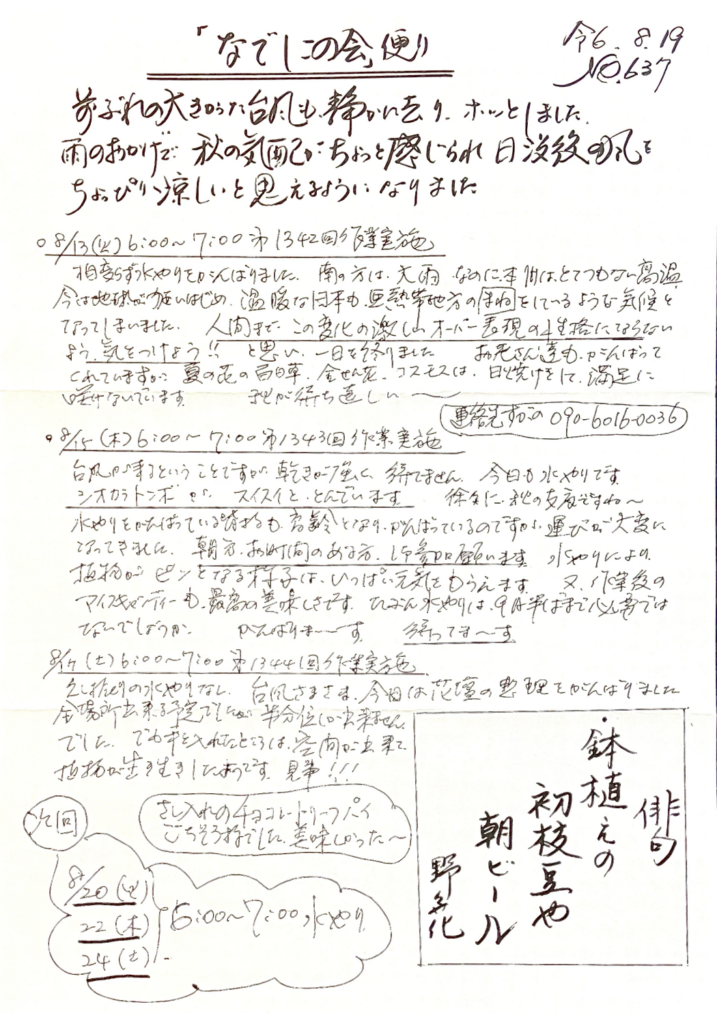 「なでしこの会」便り
令6.8.19
No.637
前ぶれの大きかった台風も、静かに去り、ホッとしました。
雨のおかげで、秋の気配がちょっと感じられ、日没後の風を
ちょっぴり涼しいと思えるようになりました
○8/13(火)6:00〜7:00 第1342回作業実施
相変らず水やりをがんばりました。南の方は、大雨なのに本州はとてつもない高温
今は地球が狂いはじめ、温暖な日本も亜熱帯地方のまねをしているような気候と
なってしまいました。人間まで、この変化の激しいオーバー表現の性格にならない
よう、気をつけよう!!と思い、一日を終りました お花さん達も、がんばって
くれていますが、夏の花の百日草、金せん花、コスモスは、日焼けをして、満足に
咲けないでいます。秋が待ち遠しい〜
連絡先すがの 090-6016-0036
○8/15(木)6:00〜7:00 第1343回作業実施
台風が来るということですが、乾きが強く、待てません。今日も水やりです
シオカラトンボが スイスイと、とんでいます 徐々に、秋の支度ですね〜
水やりをがんばっている皆様も、高齢となり、がんばっているのですが、運びが大変に
なってきました。朝方、お時間のある方、ご参加願います。水やりにより、
植物がピンとなる様子は、いっぱい元気をもらえます。又、作業後の
アイスキャンディーも、最高の美味しさです。たぶん水やりは、9月半ばまで必要では
ないでしょうか。がんばりま〜〜す。待ってま〜す
8/17(土)6:00〜7:00 第1344回作業実施
久しぶりの水やりなし、台風さまさま、今日は花壇の整理をがんばりました
全場所出来る予定でしたが、半分位しか出来ません
でした。でも手を入れたところは、空間が出来て、
植物が生き生きしたようです。見事!!!
さし入れのチョコレートリーフパイ
ごちそう様でした。美味しかった〜
次回
8/20(火)
22(木)
24(土)
6:00〜7:00 水やり
俳句
・鉢植えの
初枝豆や
朝ビール
野の花